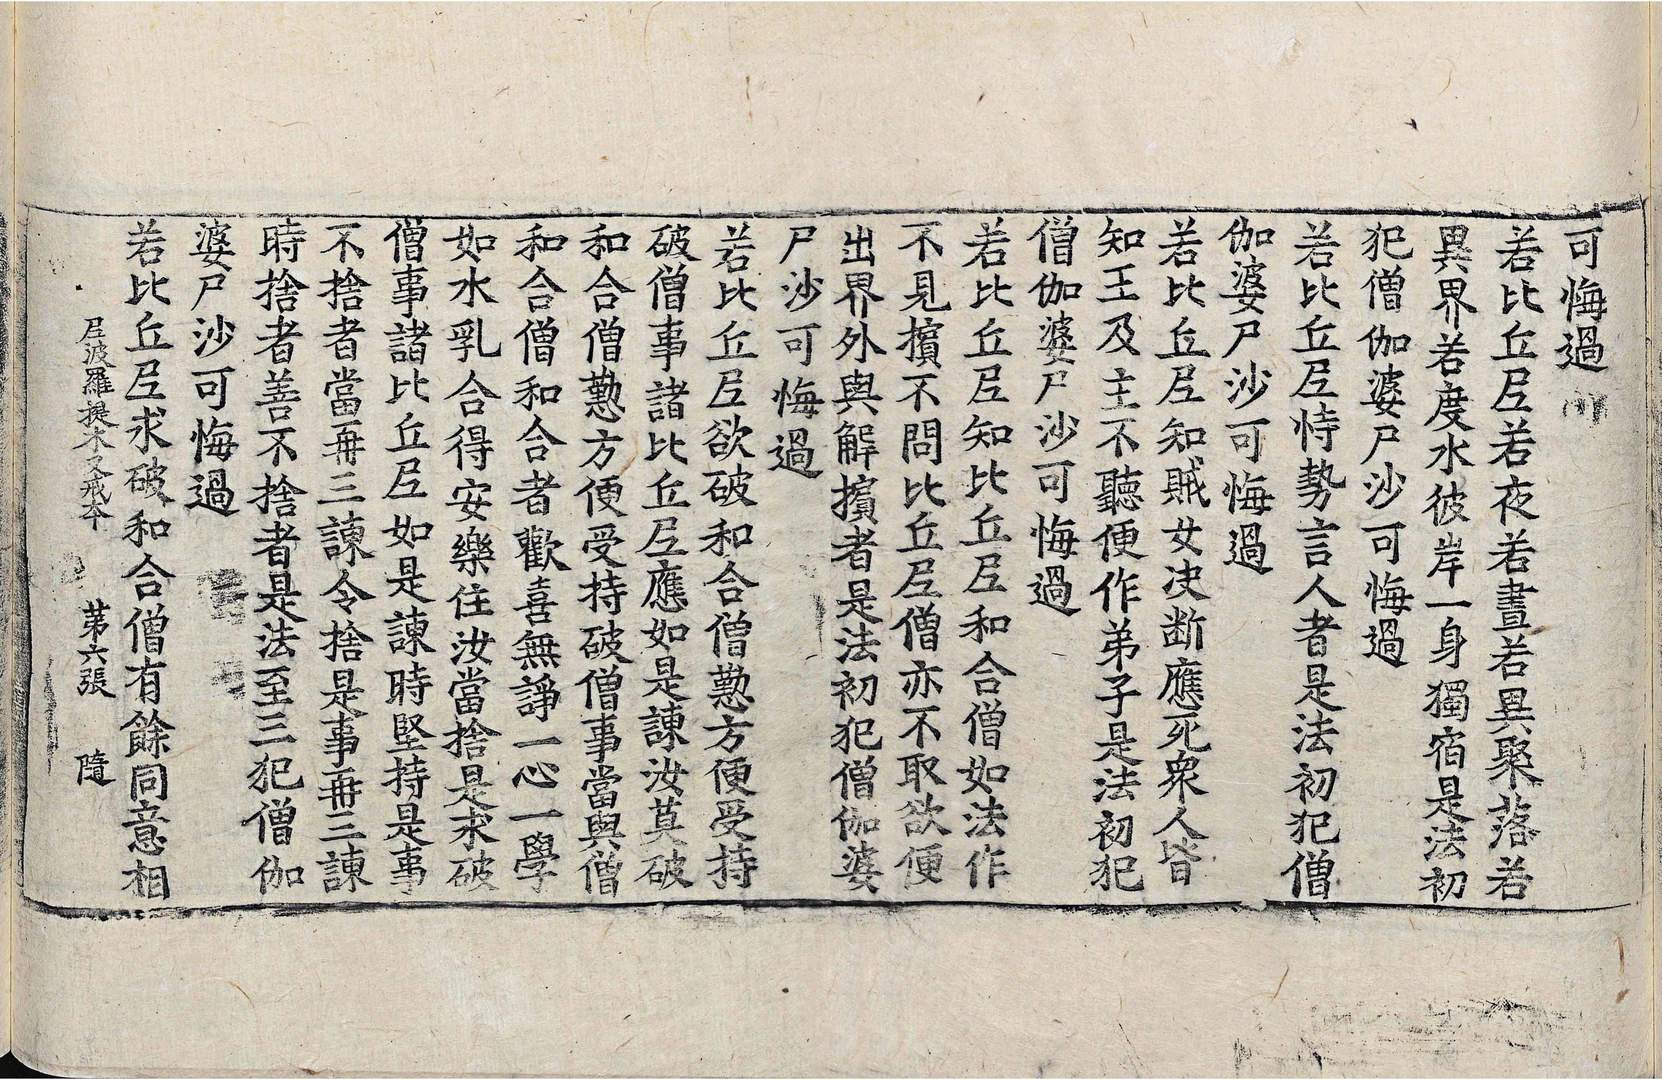 可悔過
若比丘尼若夜若晝若異聚落若
異界若度水彼岸一身獨宿是法初
犯僧伽婆尸沙可悔過
若比丘尼恃勢言人者是法初犯僧
伽婆尸沙可悔過
若比丘尼知賊女決断應死衆人皆
知王及主不聽便作弟子是法初犯
僧伽婆尸沙可悔過
若比丘尼知比丘尼和合僧如法作
不見擯不問比丘尼僧亦不取欲便
出界外與解擯者是法初犯僧伽婆
尸沙可悔過
若比丘尼欲破和合僧懃方便受持
破僧事諸比丘尼應如是諫汝莫破
和合僧懃方便受持破僧事當與僧
和合僧和合者歡喜無諍一心一學
如水乳合得安樂住汝當捨是求破
僧事諸比丘尼如是諫時堅持是事
不捨者當再三諫令捨是事再三諫
時捨者善不捨者是法至三犯僧伽
婆尸沙可悔過
若比丘尼求破和合僧有餘同意相
尼波羅提木叉戒本 第六張 隨